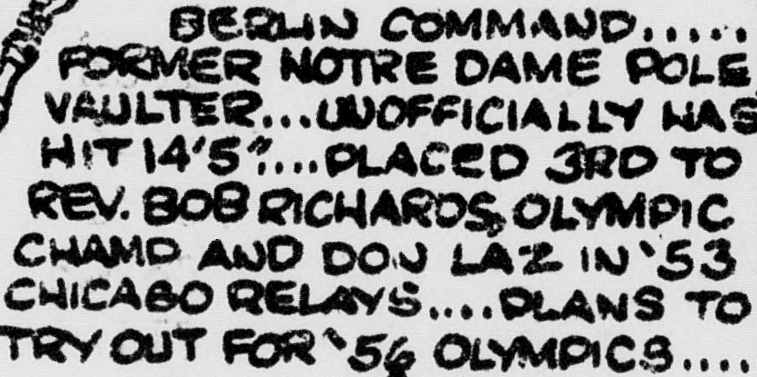 BERLIN COMMAND.....
FORMER NOTRE DAME POLE
VAULTER...UNOFFICIALLY HAS
HIT 14'5"....PLACED 3RD TO
REV. BOB RICHARDS, OLYMPIC
CHAMP AND DON LAZ IN '53
CHICAGO RELAYS....PLANS TO
TRY OUT FOR '56 OLYMPICS....